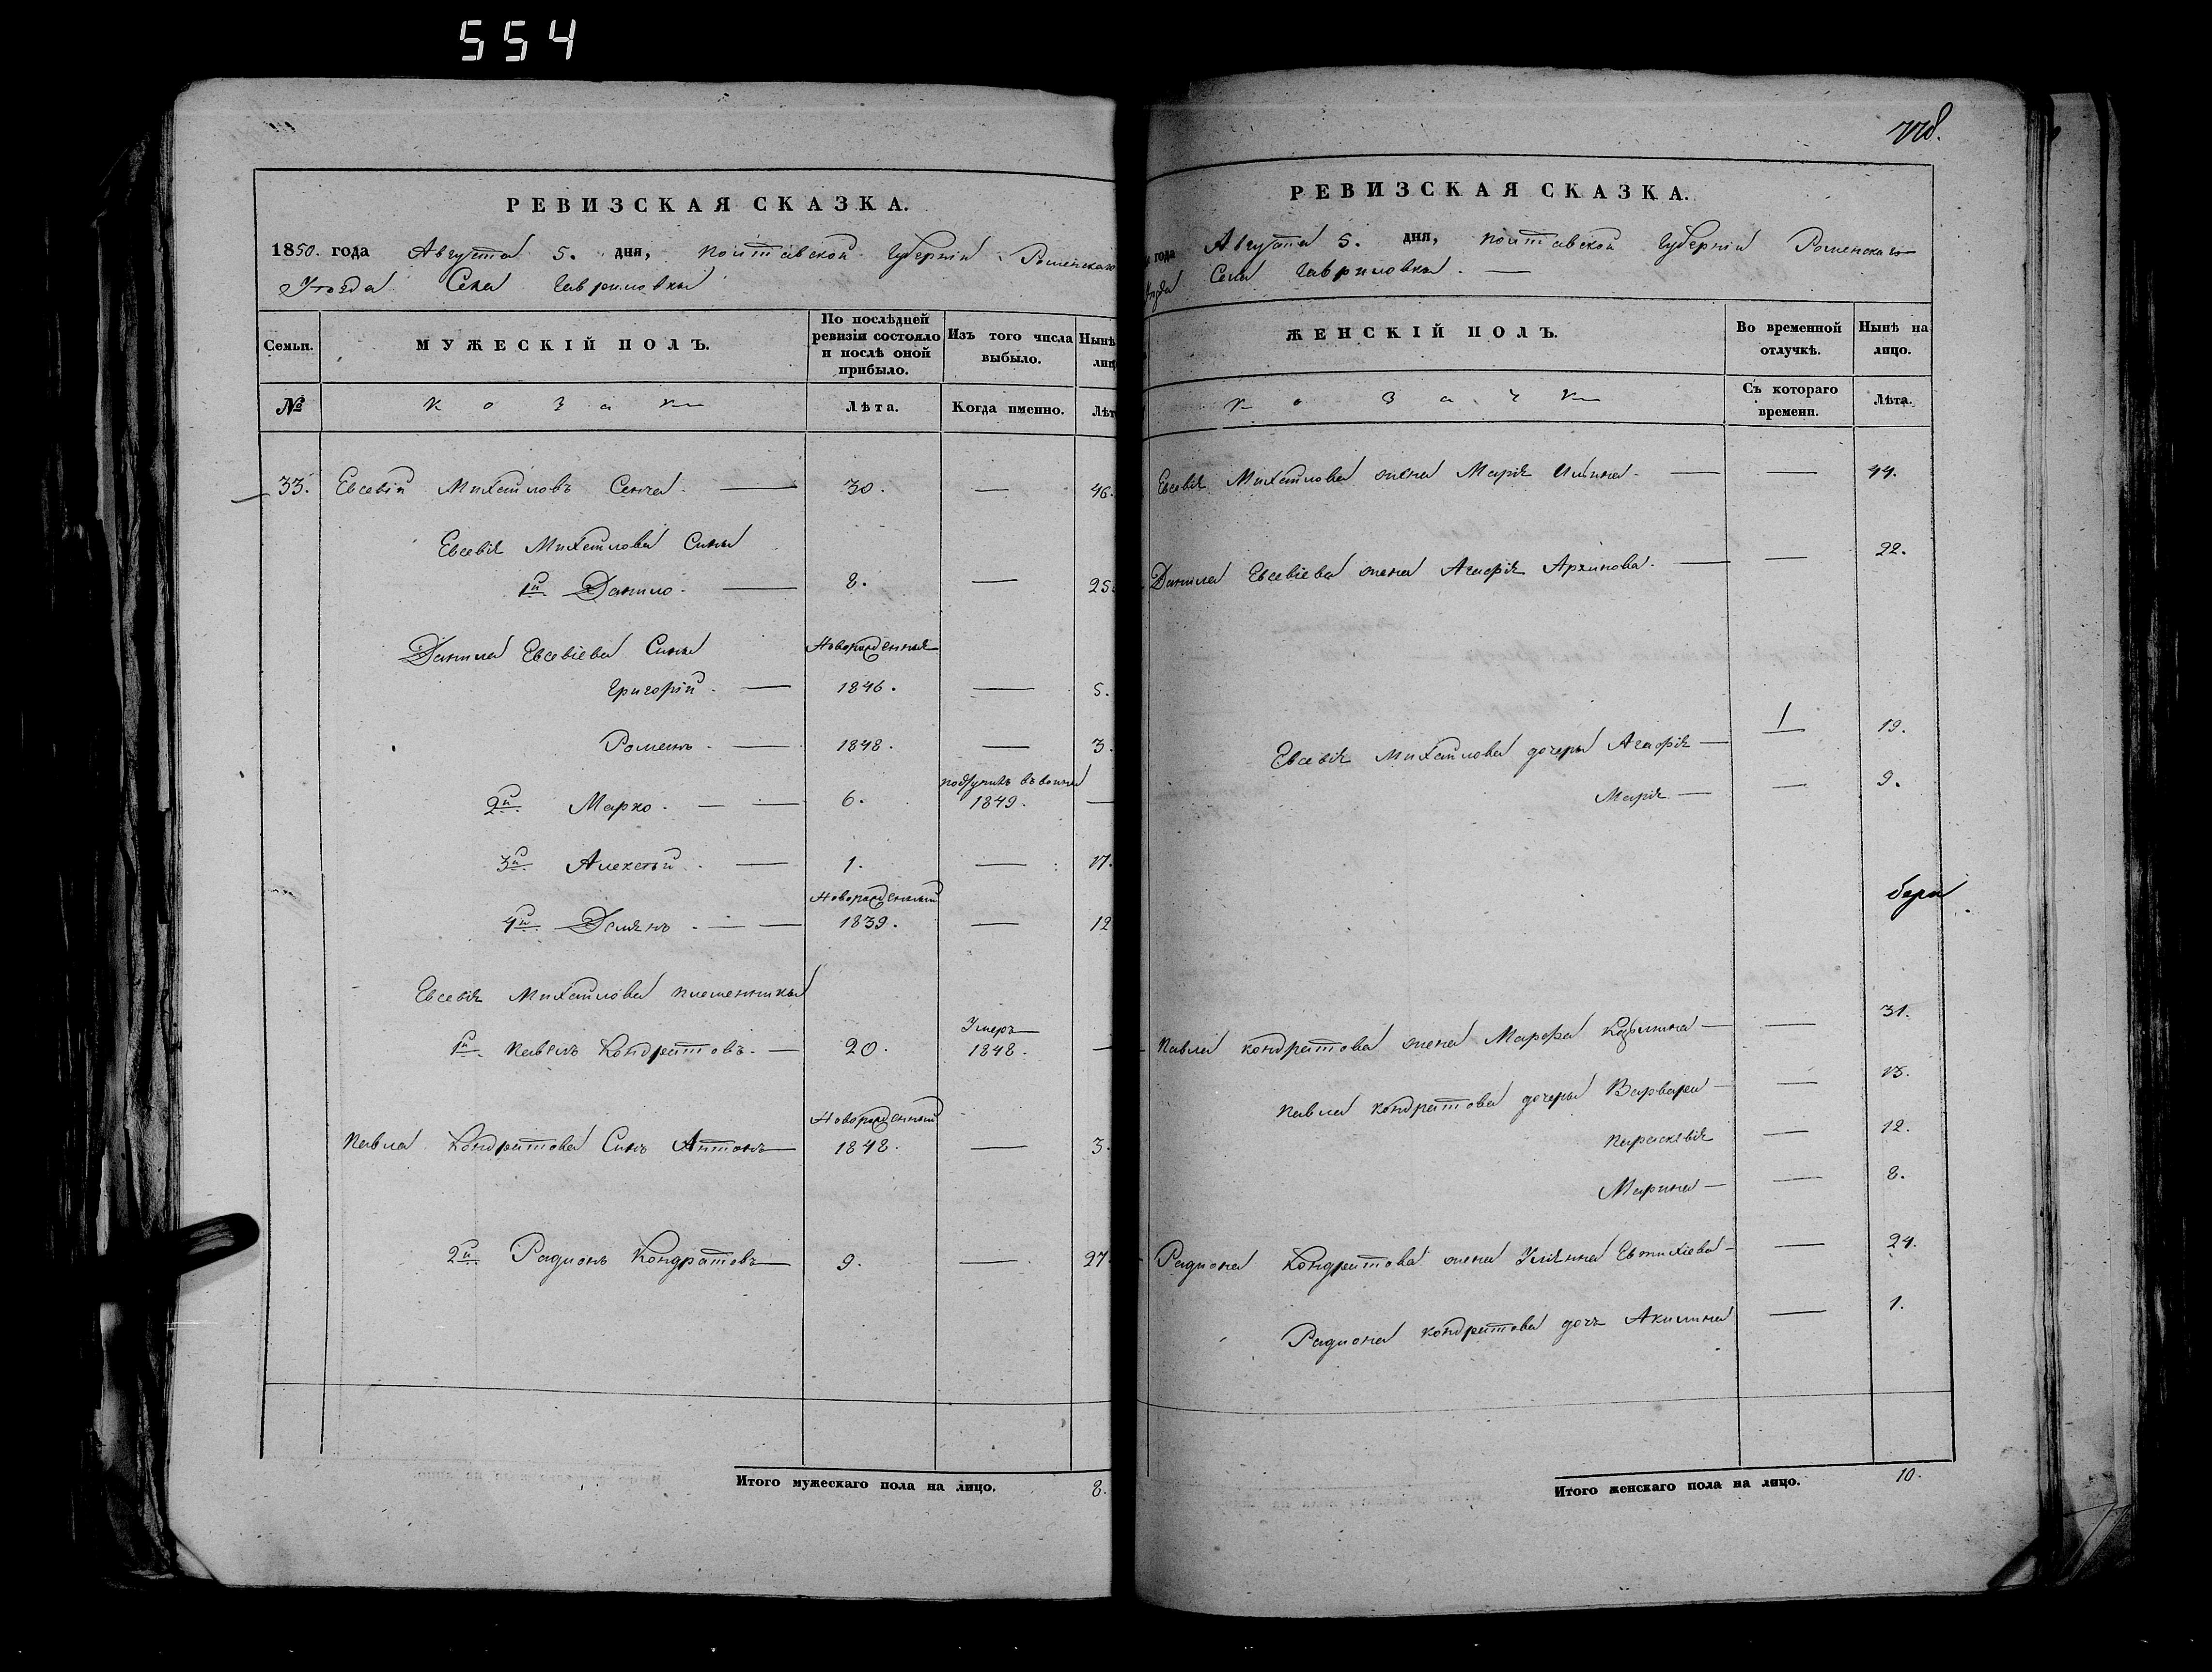 554
778.
РЕВИЗСКАЯ СКАЗКА.
1850. года Августа 5. дня, Полтавской Губерніи Роменскаго
Уѣзда Села Гавриловки
Семьи. МУЖЕСКІЙ ПОЛЪ. По послѣдней ревизіи состояло и послѣ оной прибыло. Изъ того числа выбыло. Нынѣ лиц
№ Козаки Лѣта. Когда именно. Лѣт
33. Евсевій Михайловъ Сенча. 30. — 46.
Евсевія Михайлова Сины
1й Данило. 8. — 25
Данила Евсевіева Сины Новорожденныя
Григорій. 1846. — 5.
Романъ. 1848. — 3.
2й Марко. 6. 1849. —
3й Алексѣй. 1. — 17.
Новорожденный
4й Демянъ. 1839. — 12
Евсевія Михайлова племенники
Умеръ
1й Павелъ Кондратовъ. 20. 1848. —
Новорожденный
Павла Кондратова Синъ Антонъ 1848. — 3.
2й Радионъ Кондратовъ 9. — 27.
Итого мужескаго пола на лицо. 8.
РЕВИЗСКАЯ СКАЗКА.
года Августа 5. дня, Полтавской Губерніи Роменскаго
Села Гавриловки. —
ЖЕНСКІЙ ПОЛЪ. Во временной отлучкѣ. Нынѣ на лицо.
Козачки Съ котораго времени. Лѣта.
Евсевія Михайлова жена Марія Ильина. — 44.
Данила Евсевіева жена Агафія Архипова. — 22.
Евсевія Михайлова дочеры Агафія — 19.
Марія — 9.
Павла Кондратова жена Марфа — 31.
Павла Кондратова дочеры Варвара — 15.
Параскевія — 12.
Марина — 8.
Радиона Кондратова жена Уліянна Евтихіева — 24.
Радиона Кондратова дочъ Акилина — 1.
Итого женскаго пола на лицо. 10.